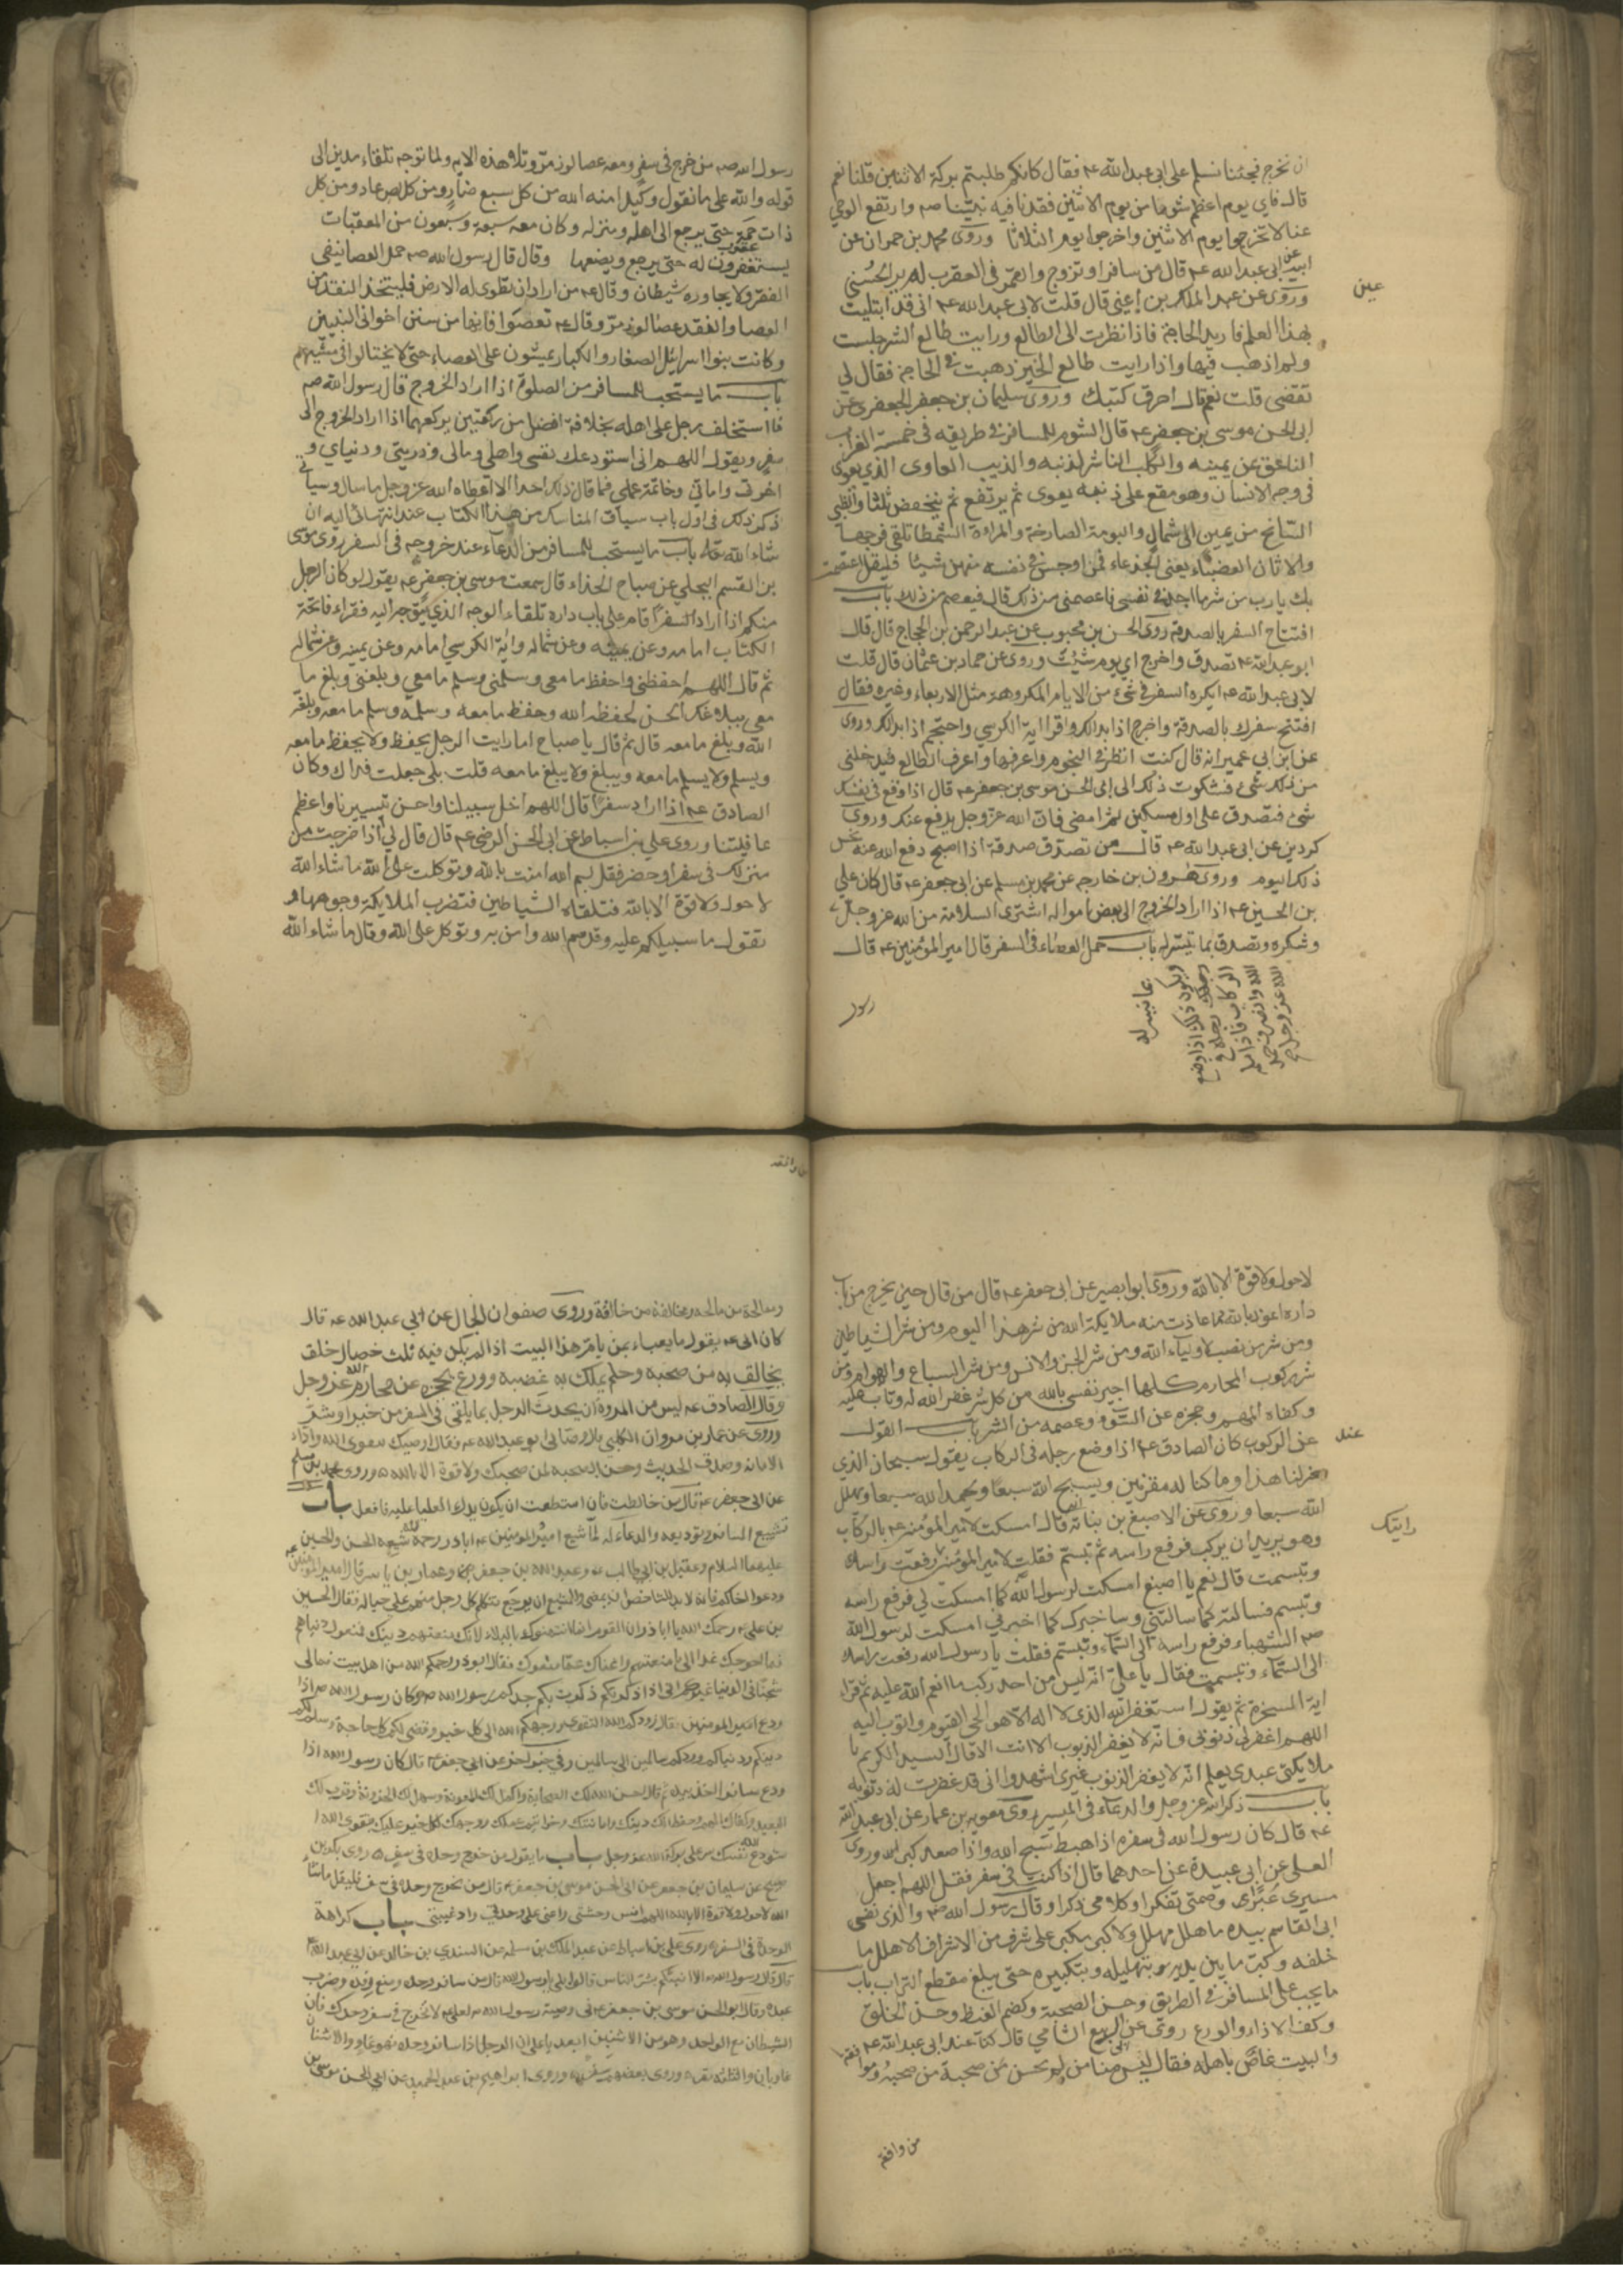 ان نخرج فجئنا نسلم على ابى عبد الله ع م فقال كانكم طلبتم بركة الاثنين قلنا نعم
قال فاي يوم اعظم شوما من يوم الاثنين فقدنا فيه نبينا صم وارتفع الوحي
عنا لا تخرجوا يوم الاثنين واخرجوا يوم الثلاثا وروى محمد بن حمران عن
ابيه عن ابى عبد الله ع م قال من سافر او تزوج والقمر فى العقرب لم ير الحسنى
عين
وروى عن عبد الملك بن اعين قال قلت لابى عبد الله ع م انى قد ابتليت
بهذا العلم فاريد الحاجة فاذا نظرت الى الطالع ورايت طالع الشر جلست
ولم اذهب فيها واذا رايت طالع الخير ذهبت فى الحاجة فقال لي
تقضى قلت نعم قال احرق كتبك وروى سليمان بن جعفر الجعفرى عن
ابى الحسن موسى بن جعفر ع م قال الشوم للمسافر فى طريقه فى خمسة الغراب
الناعق عن يمينه والكلب الناشر لذنبه والذيب العاوى الذي يعوى
فى وجه الانسان وهو مقع على ذنبه يعوى ثم يرتفع ثم ينخفض ثلثا والظبى
السانح من يمين الى شمال والبومة الصارخة والمراءة الشمطا تلقى فرجها
والاتان العضباء يعنى الجدعاء فمن اوجس فى نفسه منهن شيئا فليقل اعتصمت
بك يا رب من شر ما اجد فى نفسى فاعصمنى من ذلك قال فيعصم من ذلك باب
افتتاح السفر بالصدقة روى الحسن بن محبوب عن عبد الرحمن بن الحجاج قال قال
ابو عبد الله ع م تصدق واخرج اي يوم شئت وروى عن حماد بن عثمان قال قلت
لابى عبد الله ع م ايكره السفر فى شئ من الايام المكروهة مثل الاربعاء وغيره فقال
افتتح سفرك بالصدقة واخرج اذا بدا لك واقرا اية الكرسي واحتجم اذا بدا لك وروى
عن ابن ابى عمير انه قال كنت انظر فى النجوم واعرفها واعرف الطالع فيدخلنى
من ذلك شئ فشكوت ذلك الى ابى الحسن موسى بن جعفر ع م قال اذا وقع فى نفسك
شئ فتصدق على اول مسكين ثم امض فان الله عز وجل يدفع عنك وروى
كردين عن ابى عبد الله ع م قال من تصدق صدقة اذا اصبح دفع الله عنه نحس
ذلك اليوم وروى هرون بن خارجه عن محمد بن مسلم عن ابى جعفر ع م قال كان علي
بن الحسين ع م اذا اراد الخروج الى بعض امواله اشترى السلامة من الله عز وجل
وشكره وتصدق بما تيسر له باب حمل العصاء فى السفر قال امير المؤمنين ع م قال
رسول
رسول الله صم من خرج فى سفر ومعه عصا لوز مر وتلا هذه الاية ولما توجه تلقاء مدين الى
قوله والله على ما نقول وكيل امنه الله من كل سبع ضار ومن كل لص عاد ومن كل
ذات حمة حتى يرجع الى اهله ومنزله وكان معه سبعة وسبعون من المعقبات
عقرب
يستغفرون له حتى يرجع ويضعها وقال قال رسول الله صم حمل العصا ينفى
الفقر ولا يجاوره شيطان وقال ع م من اراد ان تطوى له الارض فليتخذ النقد من
العصا والنقد عصا لوز مر وقال ع م تعصوا فانها من سنن اخوانى النبيين
وكانت بنوا اسرائيل الصغار والكبار يمشون على العصاء حتى لا يختالوا فى مشيهم
باب ما يستحب للمسافر من الصلوة اذا اراد الخروج قال رسول الله صم
ما استخلف رجل على اهله بخلافة افضل من ركعتين يركعهما اذا اراد الخروج الى
سفر ويقول اللهم انى استودعك نفسى واهلى ومالى وذريتى ودنياي و
اخرتى وامانتى وخاتمة عملى فما قال ذلك احد الا اعطاه الله عز وجل ما سال وسياتى
ذكر ذلك فى اول باب سياق المناسك من هذا الكتاب عند انتهائى اليه ان
شاء الله تعالى باب ما يستحب للمسافر من الدعاء عند خروجه فى السفر روى موسى
بن القسم البجلي عن صباح الحذاء قال سمعت موسى بن جعفر ع م يقول لو كان الرجل
منكم اذا اراد السفر قام على باب داره تلقاء الوجه الذي يتوجه اليه فقراء فاتحة
الكتاب امامه وعن يمينه وعن شماله واية الكرسي امامه وعن يمينه وعن شماله
ثم قال اللهم احفظنى واحفظ ما معى وسلمنى وسلم ما معي وبلغنى وبلغ ما
معى ببلاغك الحسن لحفظه الله وحفظ ما معه وسلمه وسلم ما معه وبلغه
الله وبلغ ما معه قال ثم قال يا صباح اما رايت الرجل يحفظ ولا يحفظ ما معه
ويسلم ولا يسلم ما معه ويبلغ ولا يبلغ ما معه قلت بلى جعلت فداك وكان
الصادق ع م اذا اراد سفرا قال اللهم خل سبيلنا واحسن تسييرنا واعظم
عافيتنا وروى علي بن اسباط عن ابى الحسن الرضى ع م قال قال لي اذا خرجت من
منزلك فى سفر او حضر فقل بسم الله امنت بالله وتوكلت على الله ما شاء الله
لا حول ولا قوة الا بالله فتلقاه الشياطين فتضرب الملايكة وجوهها و
تقول ما سبيلكم عليه وقد سم الله وامن به وتوكل على الله وقال ما شاء الله
لا حول ولا قوة الا بالله وروى ابو بصير عن ابى جعفر ع م قال من قال حين يخرج من باب
داره اعوذ بالله مما عاذت منه ملايكة الله من شر هذا اليوم ومن شر الشياطين
ومن شر من نصب لاولياء الله ومن شر الجن والانس ومن شر السباع والهوام ومن
شر ركوب المحارم كلها اجير نفسى بالله من كل شر غفر الله له وتاب عليه
وكفاه المهم وحجزه عن السوء وعصمه من الشر باب القول
عند
عن الركوب كان الصادق ع م اذا وضع رجله فى الركاب يقول سبحان الذي
سخر لنا هذا وما كنا له مقرنين ويسبح الله سبعا ويحمد الله سبعا ويهلل
الله سبعا وروى عن الاصبغ بن نباتة انه قال امسكت لامير المؤمنين ع م بالركاب
رايتك
وهو يريد ان يركب فرفع راسه ثم تبسم فقلت يا امير المؤمنين رفعت راسك
وتبسمت قال نعم يا اصبغ امسكت لرسول الله كما امسكت لي فرفع راسه
وتبسم فسالته كما سالتنى وساخبرك كما اخبرنى امسكت لرسول الله
صم الشهباء فرفع راسه الى السماء وتبسم فقلت يا رسول الله رفعت راسك
الى السماء وتبسمت فقال يا علي انه ليس من احد ركب ما انعم الله عليه ثم قرا
اية السخرة ثم يقول استغفر الله الذى لا اله الا هو الحي القيوم واتوب اليه
اللهم اغفر لى ذنوبى فانه لا يغفر الذنوب الا انت الا قال السيد الكريم يا
ملايكتى عبدى يعلم انه لا يغفر الذنوب غيرى اشهدوا انى قد غفرت له ذنوبه
باب ذكر الله عز وجل والدعاء فى المسير روى معوية بن عمار عن ابى عبد الله
ع م قال كان رسول الله فى سفره اذا هبط سبح الله واذا صعد كبر الله وروى
العلى عن ابى عبيدة عن احدهما قال اذا كنت فى سفر فقل اللهم اجعل
مسيرى عبرا وصمتى تفكرا وكلامى ذكرا وقال رسول الله صم والذى نفس
ابى القاسم بيده ما هلل مهلل ولا كبر مكبر على شرف من الاشراف الا هلل ما
خلفه وكبر ما بين يديه بتهليله وبتكبيره حتى يبلغ مقطع التراب باب
ما يجب على المسافر فى الطريق وحسن الصحبة وكضم الغيظ وحسن الخلق
وكف الاذاء والورع روى عن ابى الربيع الشامي قال كنا عند ابى عبد الله ع م
والبيت غاص باهله فقال ليس منا من لم يحسن صحبة من صحبه
من وافقه
ومالحة من مالحه ومخالقة من خالقه وروى صفوان الجمال عن ابي عبد الله ع م قال
كان ابى ع م يقول ما يعباء بمن يام هذا البيت اذا لم يكن فيه ثلث خصال خلق
يخالق به من صحبه وحلم يملك به غضبه وورع يحجزه عن محارم الله عز وجل
وقال الصادق ع م ليس من المروة ان يحدث الرجل بما يلقى فى السفر من خير او شر
وروى عن عمار بن مروان الكلبى قال اوصانى ابو عبد الله ع م فقال اوصيك بتقوى الله واداء
الامانة وصدق الحديث وحسن الصحبة لمن صحبك ولا قوة الا بالله وروى محمد بن مسلم
عن ابى جعفر ع م قال من خالطت فان استطعت ان يكون يدك العليا عليه فافعل باب
تشييع المسافر وتوديعه والدعاء له لما شيع امير المؤمنين ع م ابا ذر رحمة الله شيعه الحسن والحسين
عليهما السلام وعقيل بن ابى طالب وعبد الله بن جعفر وعمار بن ياسر قال امير المؤمنين
ودعوا اخاكم فانه لا بد للشاخص ان يمضى وللمشيع ان يرجع فتكلم كل رجل منهم على حياله فقال الحسين
بن على رحمك الله يا ابا ذر ان القوم انما امتهنوك بالبلاء لانك منعتهم دينك فمنعوك دنياهم
فما احوجك غدا الى ما منعتهم واغناك عما منعوك فقال ابو ذر رحمكم الله من اهل بيت فما لى
شجن فى الدنيا غيركم انى اذا ذكرتكم ذكرت بكم جدكم رسول الله صم وكان رسول الله صم اذا
ودع امير المؤمنين قال زودكم الله التقوى ووجهكم الله الى كل خير وقضى لكم كل حاجة وسلم لكم
دينكم ودنياكم وردكم سالمين الى سالمين وفى خبر اخر عن ابى جعفر قال كان رسول الله اذا
ودع مسافرا اخذ بيده ثم قال احسن الله لك الصحابة واكمل لك المعونة وسهل لك الحزونة وقرب لك
البعيد وكفاك المهم وحفظ لك دينك وامانتك وخواتيم عملك ووجهك لكل خير عليك بتقوى الله
استودع الله نفسك سر على بركة الله عز وجل باب ما يقول من خرج وحده فى سفر روى بكر بن
صالح عن سليمان بن جعفر عن ابى الحسن موسى بن جعفر قال من يخرج وحده فى سفر فليقل ما شاء
الله لا حول ولا قوة الا بالله اللهم انس وحشتى واعنى على وحدتى واد غيبتى باب كراهة
الوحدة فى السفر روى على بن اسباط عن عبد الملك بن سلمه عن السندي بن خالد عن ابى عبد الله
قال قال رسول الله الا انبئكم بشر الناس قالوا بلى يا رسول الله قال من سافر وحده ومنع رفده وضرب
عبده وقال ابو الحسن موسى بن جعفر فى وصية رسول الله لعلى لا تخرج فى سفر وحدك فان
الشيطان مع الواحد وهو من الاثنين ابعد يا على ان الرجل اذا سافر وحده فهو غاو والاثنان
غاويان والثلثة نفر وروى بعضهم سفر وروى ابراهيم بن عبد الحميد عن ابى الحسن موسى بن